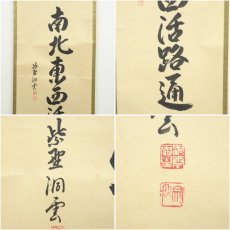 南北東西活
紫野 洞雲
西活路通
雲
紫野 洞雲